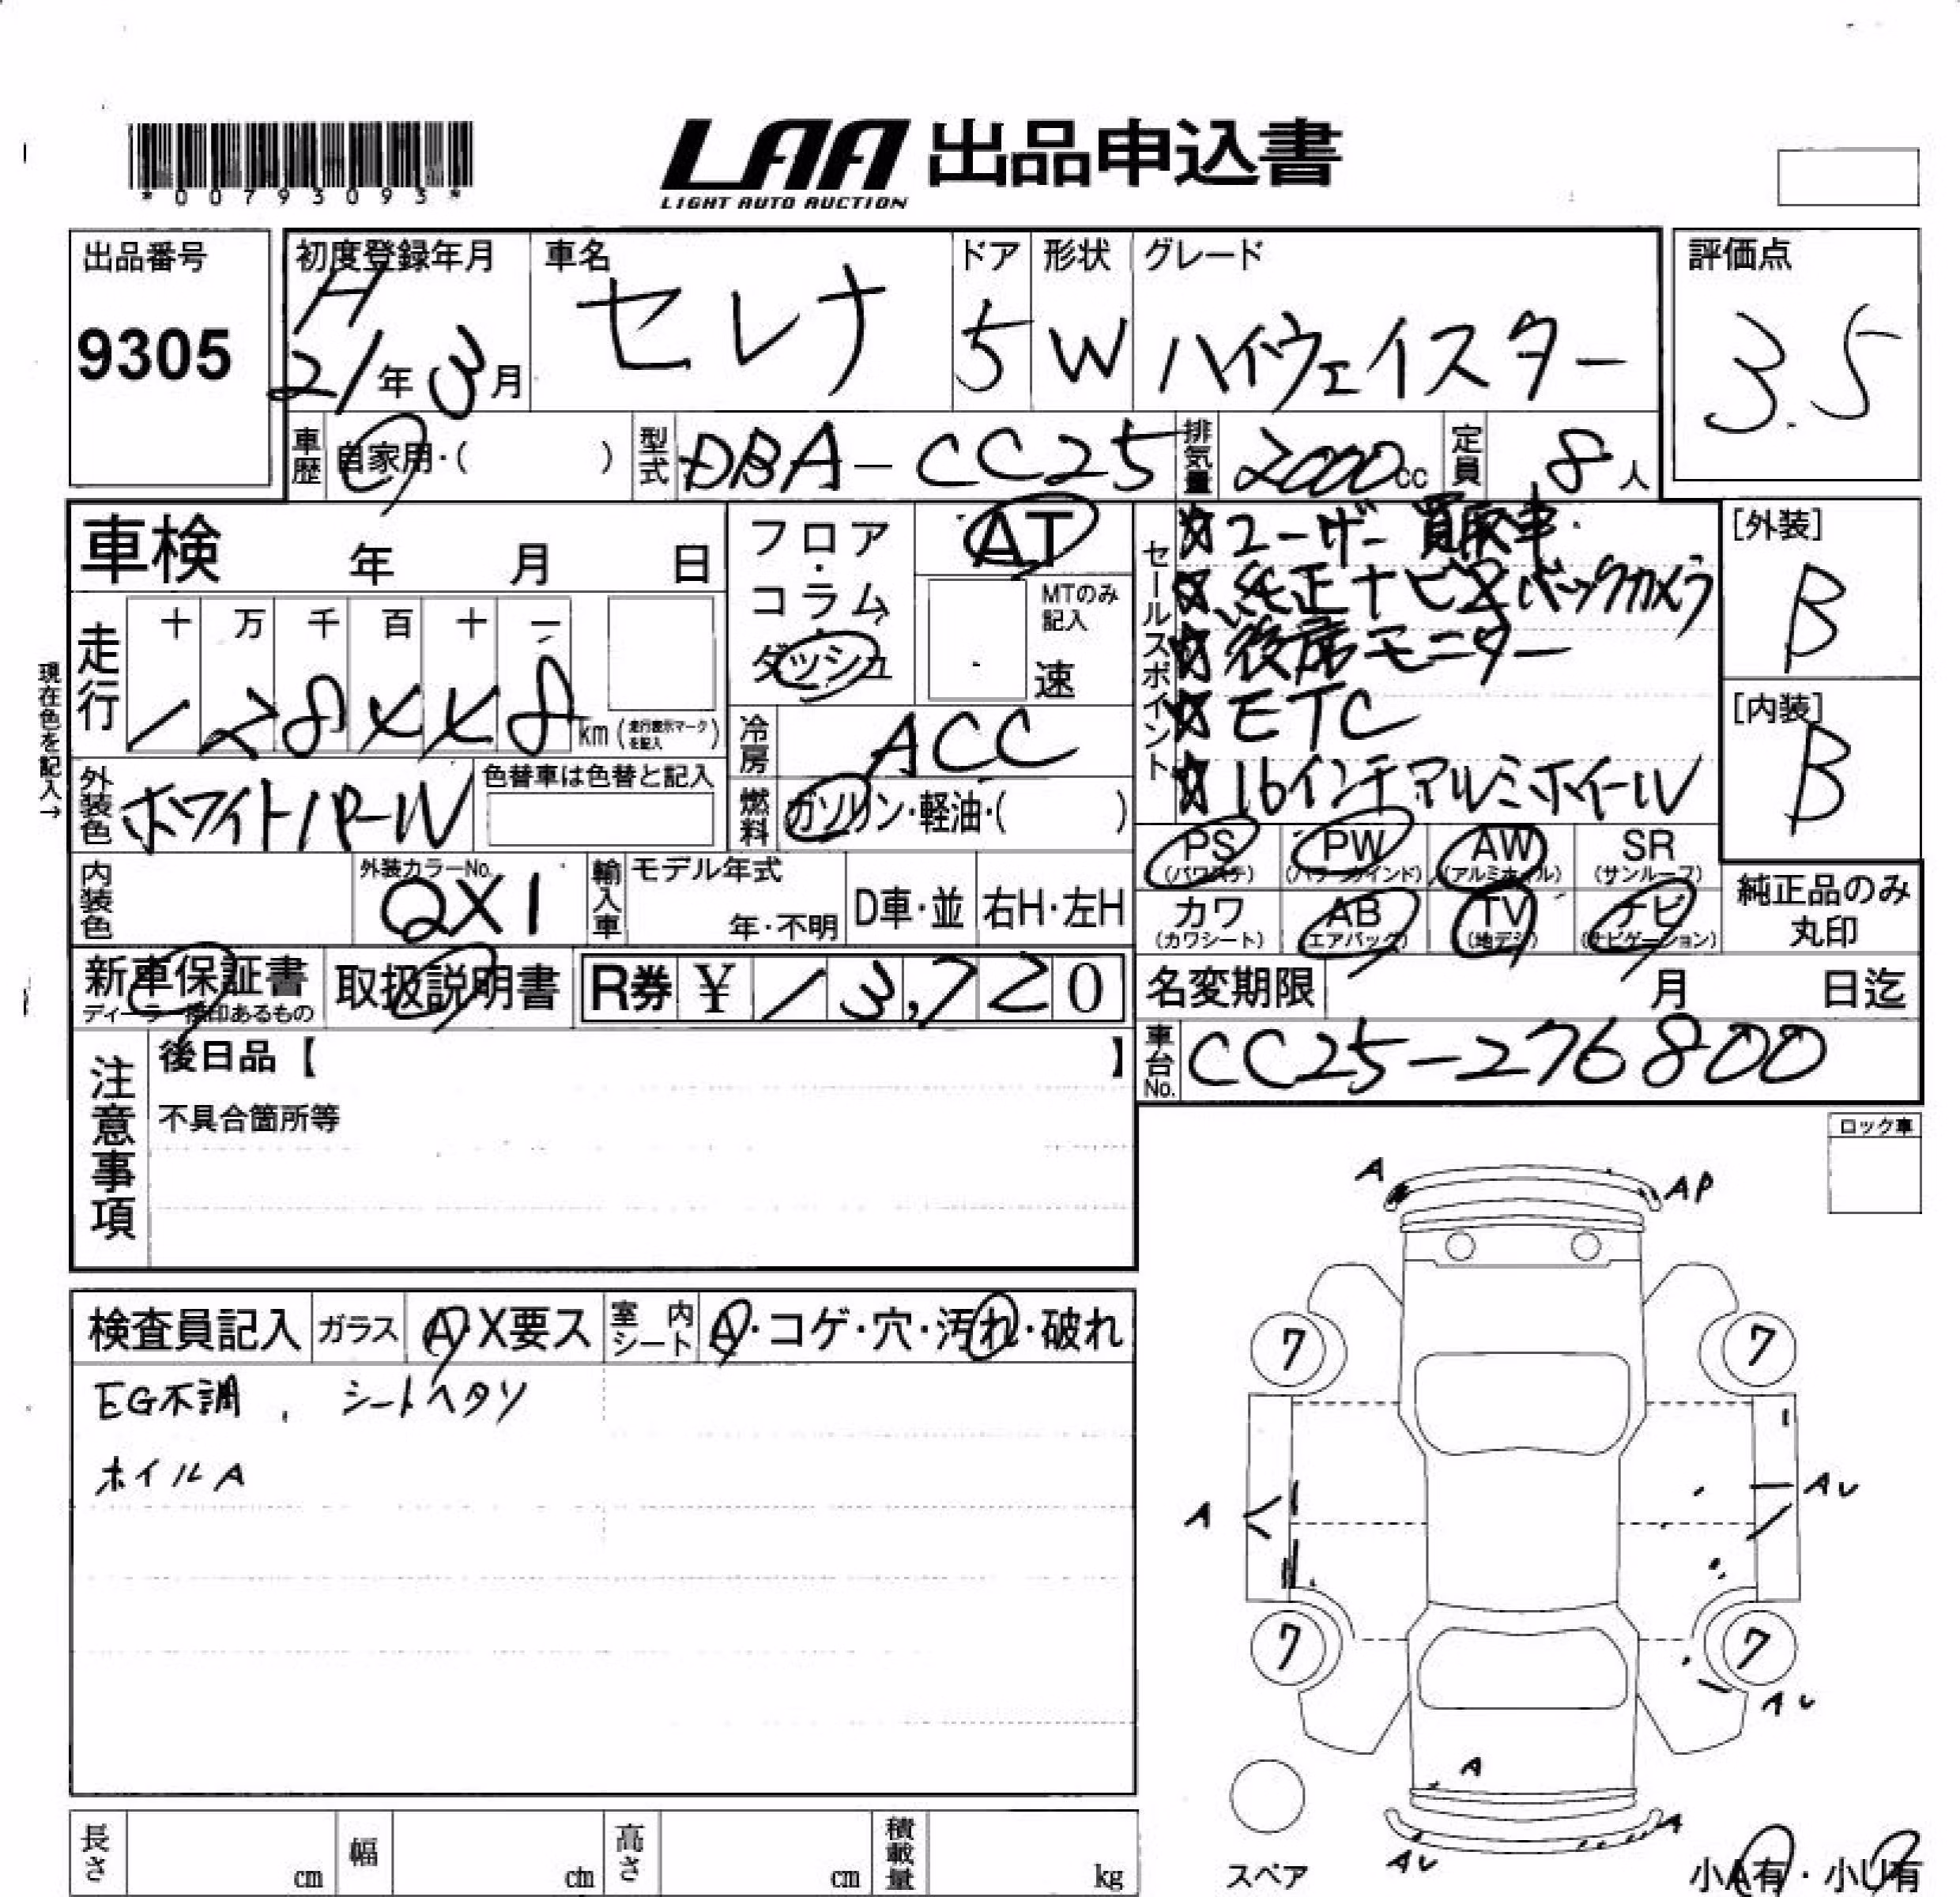 *00793093*
LAA 出品申込書
LIGHT AUTO AUCTION
出品番号
9305
初度登録年月
H
21年03月
車名
セレナ
ドア
5
形状
W
グレード
ハイウェイスター
評価点
3.5
車歴
自家用・( )
型式
DBA-CC25
排気量
2000cc
定員
8人
車検 年 月 日
現在色を記入→
走行
十 万 千 百 十 一
128××8 km (走行表示マークを記入)
フロア・コラム・ダッシュ
AT
MTのみ記入
速
セールスポイント
☆ユーザー買取車
☆純正ナビ&バックカメラ
☆後席モニター
☆ETC
☆16インチアルミホイール
[外装]
B
[内装]
B
外装色
ホワイトパール
色替車は色替と記入
冷房
ACC
燃料
ガソリン・軽油・( )
内装色
外装カラーNo.
QX1
輸入車
モデル年式
年・不明
D車・並
右H・左H
PS (パワステ)
PW (パワーウインド)
AW (アルミホイル)
SR (サンルーフ)
カワ (カワシート)
AB (エアバック)
TV (地デジ)
ナビ (ナビゲーション)
純正品のみ丸印
新車保証書
ディーラー捺印あるもの
取扱説明書
R券 ¥ 13,720
名変期限 月 日迄
車台No.
CC25-276800
注意事項
後日品【 】
不具合箇所等
ロック車
検査員記入
ガラス
A・X要ス
室内シート
A・コゲ・穴・汚れ・破れ
EG不調, シートヘタリ
ホイルA
A
AP
7
7
A
AU
7
7
AU
A
AU
A
スペア
小A有・小U有
長さ cm
幅 cm
高さ cm
積載量 kg